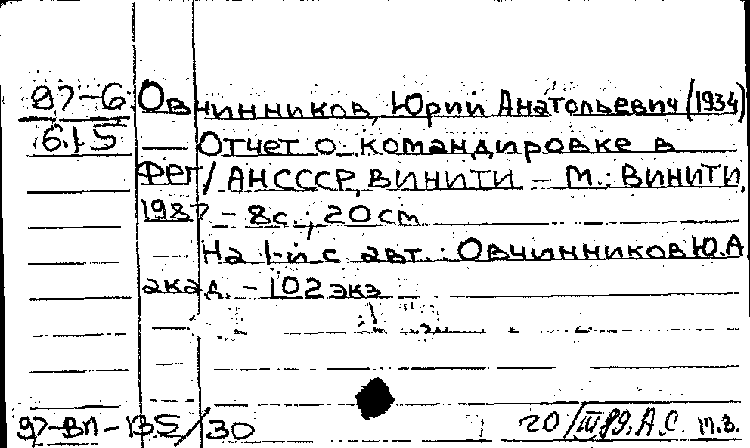 97-6 Овчинников, Юрий Анатольевич (1934)
615 — Отчет о командировке в
ФРГ / АН СССР, ВИНИТИ – М.: ВИНИТИ,
1987 – 8с.; 20 см
На 1-й с авт.: Овчинников Ю.А
акад. – 102 экз
97-ВЛ-135/30 20/III 89. А.С. м.з.